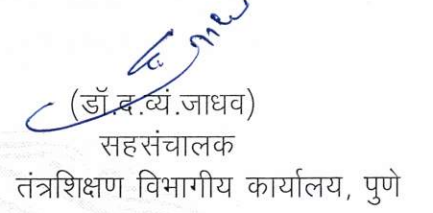 (डॉ.द.व्यं.जाधव)
सहसंचालक
तंत्रशिक्षण विभागीय कार्यालय, पुणे